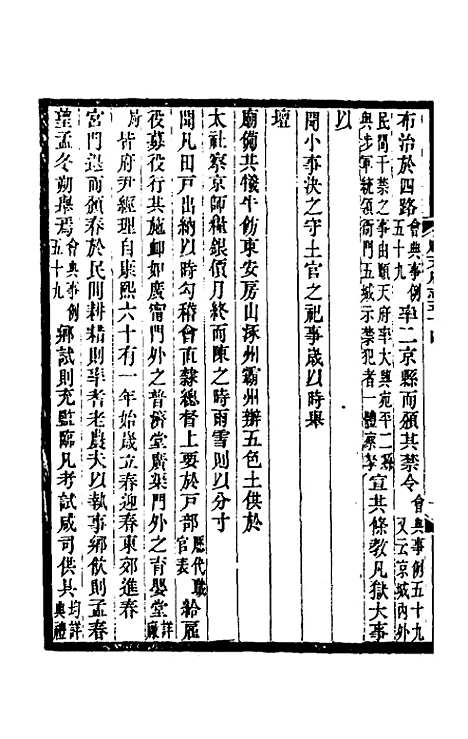 布治於四路會典事例五十九率二京縣而頒其禁令會典事例五十九又云京城內外
民間千禁之事由順天府率大興宛平二縣與步軍統領衙門五城示禁犯者一體察拏宣其條教凡獄大事
以
聞小事決之守土官之祀事歲以時舉
壇
廟備其犧牛飭東安房山涿州霸州辦五色土供於
太社察京師糧銀價月終而陳之時雨雪則以分寸
聞凡田戸出納以時勾稽會直隸總督上要於戸部歷代職官表給雇
役募役行其施卹如廣甯門外之普濟堂廣渠門外之育嬰堂詳廠
皆府尹經理自康熙六十有一年始歲立春迎春東郊進春
宮門退而頒春於民間耕耤則率耆老農夫以執事鄉飲則孟春
望孟冬朔舉焉會典事例五十九鄉試則充監臨凡考試咸司供具均詳典禮